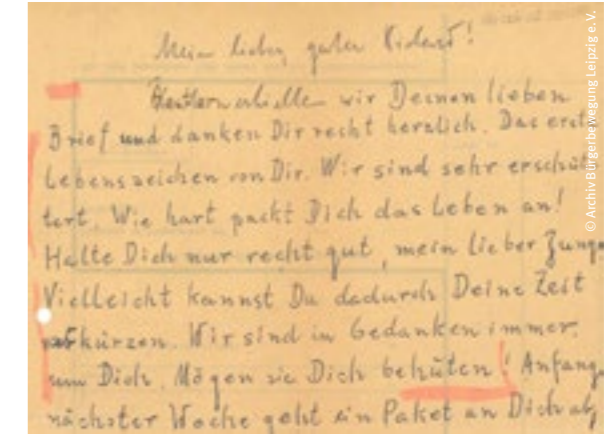 Mein lieber, guter Richard!
wir Deinen lieben
Brief und danken Dir recht herzlich. Das erste
Lebenszeichen von Dir. Wir sind sehr erschüt
tert. Wie hart packt Dich das Leben an!
Halte Dich nur recht gut, mein lieber Junge
Vielleicht kannst Du dadurch Deine Zeit
abkürzen. Wir sind in Gedanken immer
um Dich. Mögen sie Dich behüten! Anfang
nächster Woche geht ein Paket an Dich ab,
© Archiv Bürgerbewegung Leipzig e.V.